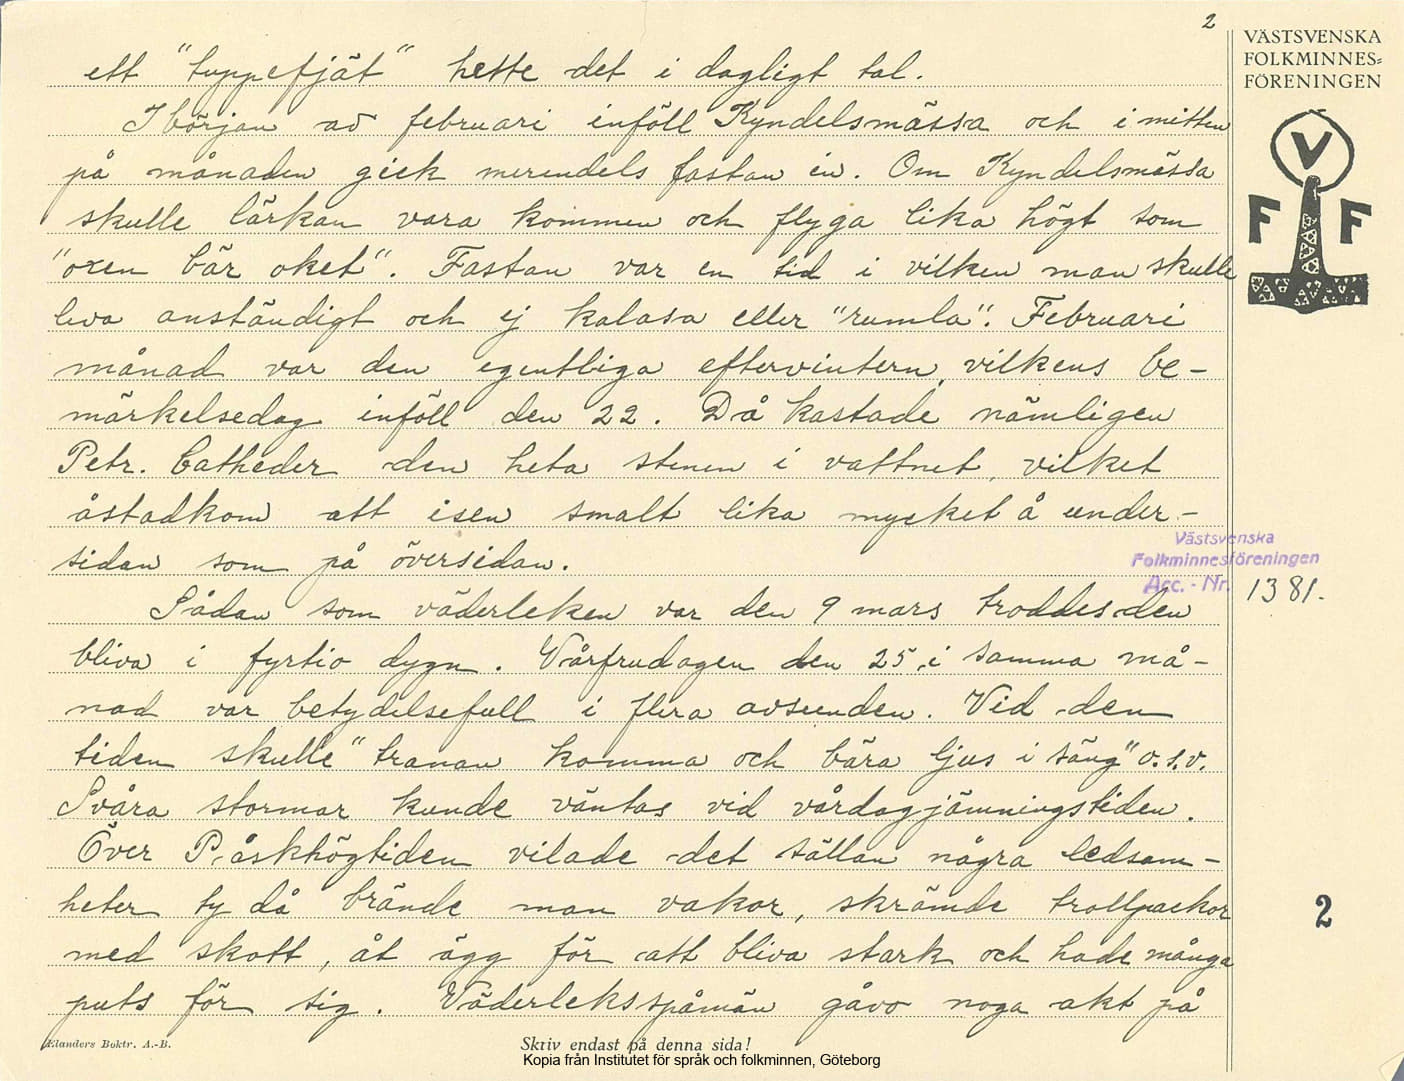 2
VÄSTSVENSKA
FOLKMINNES=
FÖRENINGEN
V
F F
ett "tuppefjät" hette det i dagligt tal.
I början av februari inföll Kyndelsmässa och i mitten
på månaden gick merendels fastan in. Om Kyndelsmässa
skulle lärkan vara kommen och flyga lika högt som
"oxen bär oket". Fastan var en tid i vilken man skulle
leva anständigt och ej kalasa eller "rumla". Februari
månad var den egentliga eftervintern, vilkens be-
märkelsedag inföll den 22. Då kastade nämligen
Petr. Catheder den heta stenen i vattnet, vilket
åstadkom att isen smalt lika mycket å under-
sidan som på översidan.
Västsvenska
Folkminnesföreningen
Acc. - Nr. 1381.
Sådan som väderleken var den 9 mars troddes den
bliva i fyrtio dygn. Vårfrudagen den 25 i samma må-
nad var betydelsefull i flera avseenden. Vid den
tiden skulle "tranan komma och bära ljus i säng" o.s.v.
Svåra stormar kunde väntas vid vårdagjämningstiden.
Över Påskhögtiden vilade det sällan några ledsam-
heter ty då brände man vakor, skrämde trollpackor
med skott, åt ägg för att bliva stark och hade många
puts för sig. Väderleksspåmän gåvo noga akt på
2
Elanders Boktr. A.-B.
Skriv endast på denna sida!
Kopia från Institutet för språk och folkminnen, Göteborg